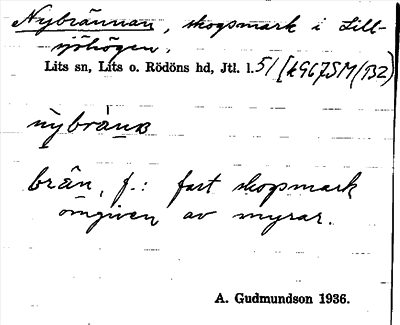 Nybrännan, skogsmark i Lill-
sjöhögen.
Lits sn, Lits o. Rödöns hd, Jtl. l. 51
nybränɴ
brän, f.: fast skogsmark
omgiven av myrar.
A. Gudmundson 1936.